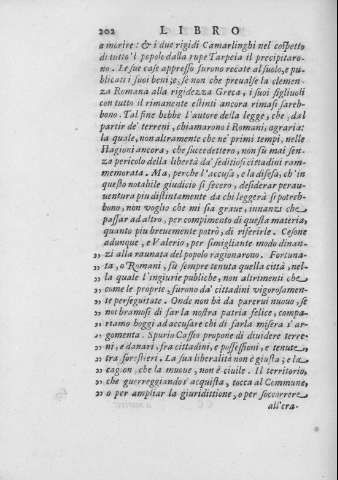 202 LIBRO
a morire: & i due rigidi Camarlinghi nel cospetto
di tutto'l popolo dalla rupe Tarpeia il precipitaro-
no. Le sue case appresso furono recate al suolo, e pu-
blicati i suoi beni; e, se non che preualse la clemen-
za Romana alla rigidezza Greca, i suoi figliuoli
con tutto il rimanente estinti ancora rimasi sareb-
bono. Tal fine hebbe l'autore della legge, che, dal
partir de' terreni, chiamarono i Romani, agraria:
la quale, non altramente che ne' primi tempi, nelle
stagioni ancora, che succedettero, non fù mai sen-
za pericolo della libertà da' seditiosi cittadini ram-
memorata. Ma, perche l'accusa, e la difesa, ch'in
questo notabile giudicio si fecero, desiderar perau-
uentura piu distintamente da chi leggerà si potreb-
bono, non voglio che mi sia graue, innanzi che
passar ad altro, per compimento di questa materia,
quanto piu breuemente potrò, di riferirle. Cesone
adunque, e Valerio, per simigliante modo dinan-
„ zi alla raunata del popolo ragionarono. Fortuna-
„ ta, o Romani, fù sempre tenuta quella città, nel-
„ la quale l'ingiurie publiche, non altrimenti che
„ come le proprie, furono da' cittadini vigorosamen-
„ te perseguitate. Onde non hà da parerui nuouo, se
„ noi bramosi di far la nostra patria felice, compa-
„ riamo hoggi ad accusare chi di farla misera s'ar-
„ gomenta. Spurio Cassio propone di diuidere terre-
„ ni, e danari, fra cittadini, e possessioni, e tenute
„ tra forestieri. La sua liberalità non è giusta; e la
„ cagion, che la muoue, non è ciuile. Il territorio,
„ che guerreggiando s'acquista, tocca al Commune,
„ o per ampliar la giuridittione, o per soccorrere
all'era-